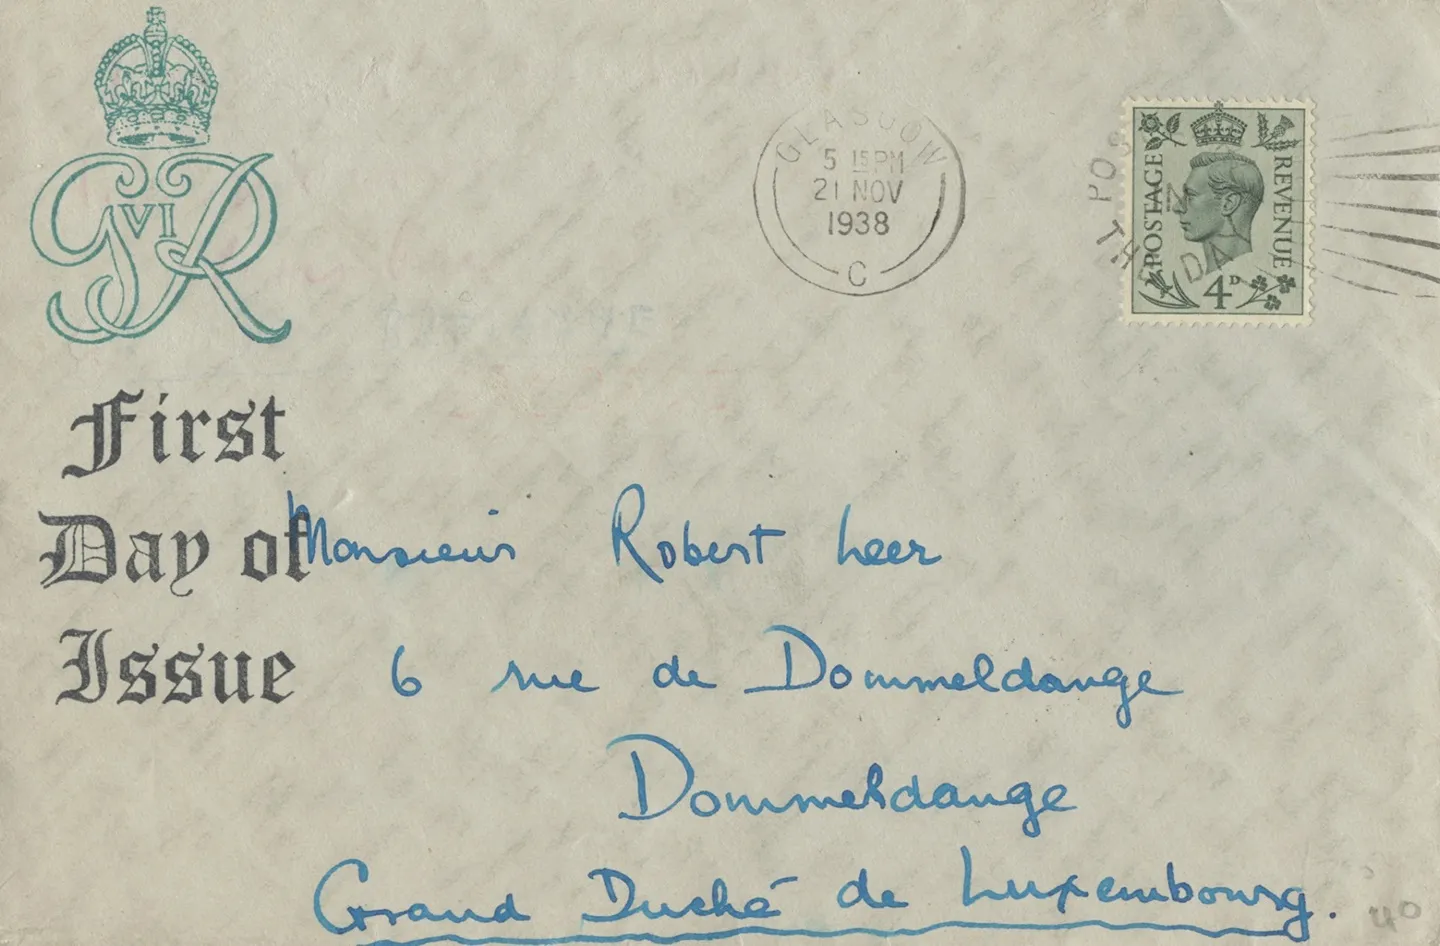 G VI R
First
Day of
Issue
GLASGOW
5 15 PM
21 NOV
1938
C
POSTAGE
REVENUE
4D
THE DAY
Monsieur Robert Leer
6 rue de Dommeldange
Dommeldange
Grand Duché de Luxembourg.
40